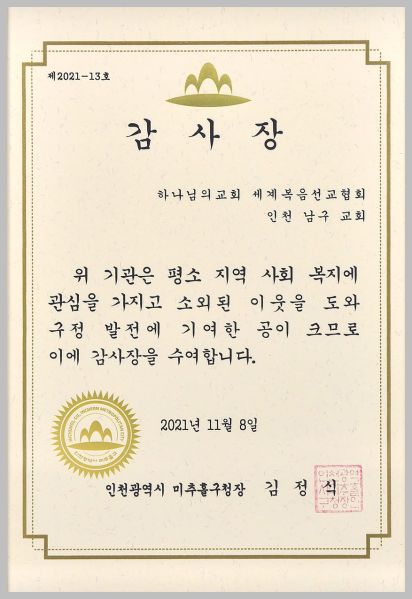 제2021-13호
감 사 장
하나님의교회 세계복음선교협회
인천 남구 교회
위 기관은 평소 지역 사회 복지에
관심을 가지고 소외된 이웃을 도와
구정 발전에 기여한 공이 크므로
이에 감사장을 수여합니다.
2021년 11월 8일
인천광역시 미추홀구청장 김 정 식